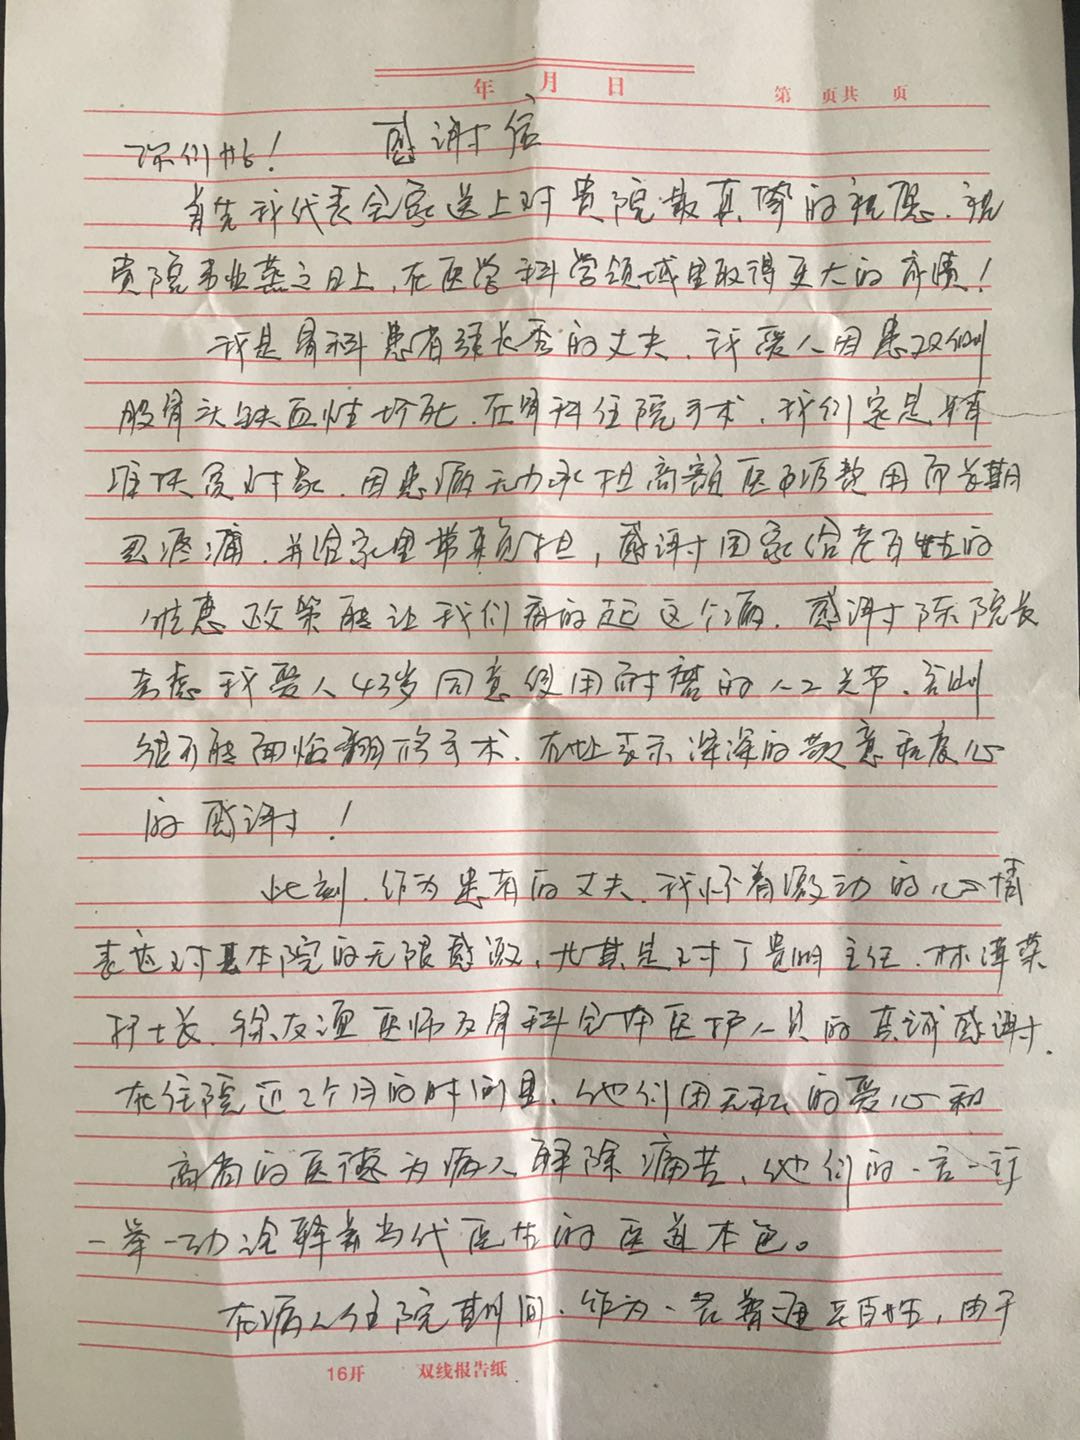 年 月 日
第 页共 页
感谢信
你们好!
首先我代表全家送上对贵院最真挚的祝愿.祝
贵院事业蒸之日上,在医学科学领域里取得更大的成绩!
我是骨科患者 长秀的丈夫.我爱人因患双侧
股骨头缺血性坏死.在骨科住院手术.我们家是精
准扶贫对象.因患病无力承担高额医疗费用而长期
忍疼痛.并给家里带来负担,感谢国家给老百姓的
优惠政策能让我们看的起这个病.感谢陈院长
考虑我爱人43岁同意使用耐磨的人工关节、否则
很可能面临翻修手术.在此表示深深的敬意和衷心
的感谢!
此刻.作为患者的丈夫.我怀着激动的心情
表达对基本院的无限感激、尤其是对丁贵明主任.林 菜
护士长.徐友 医师及骨科全体医护人员的真诚感谢.
在住院近2个月的时间里、他们用无私的爱心和
高尚的医德为病人解除痛苦、他们的一言一行
一举一动诠释着当代医生的医道本色。
在病人住院期间.作为一名普通百姓,由于
16开 双线报告纸